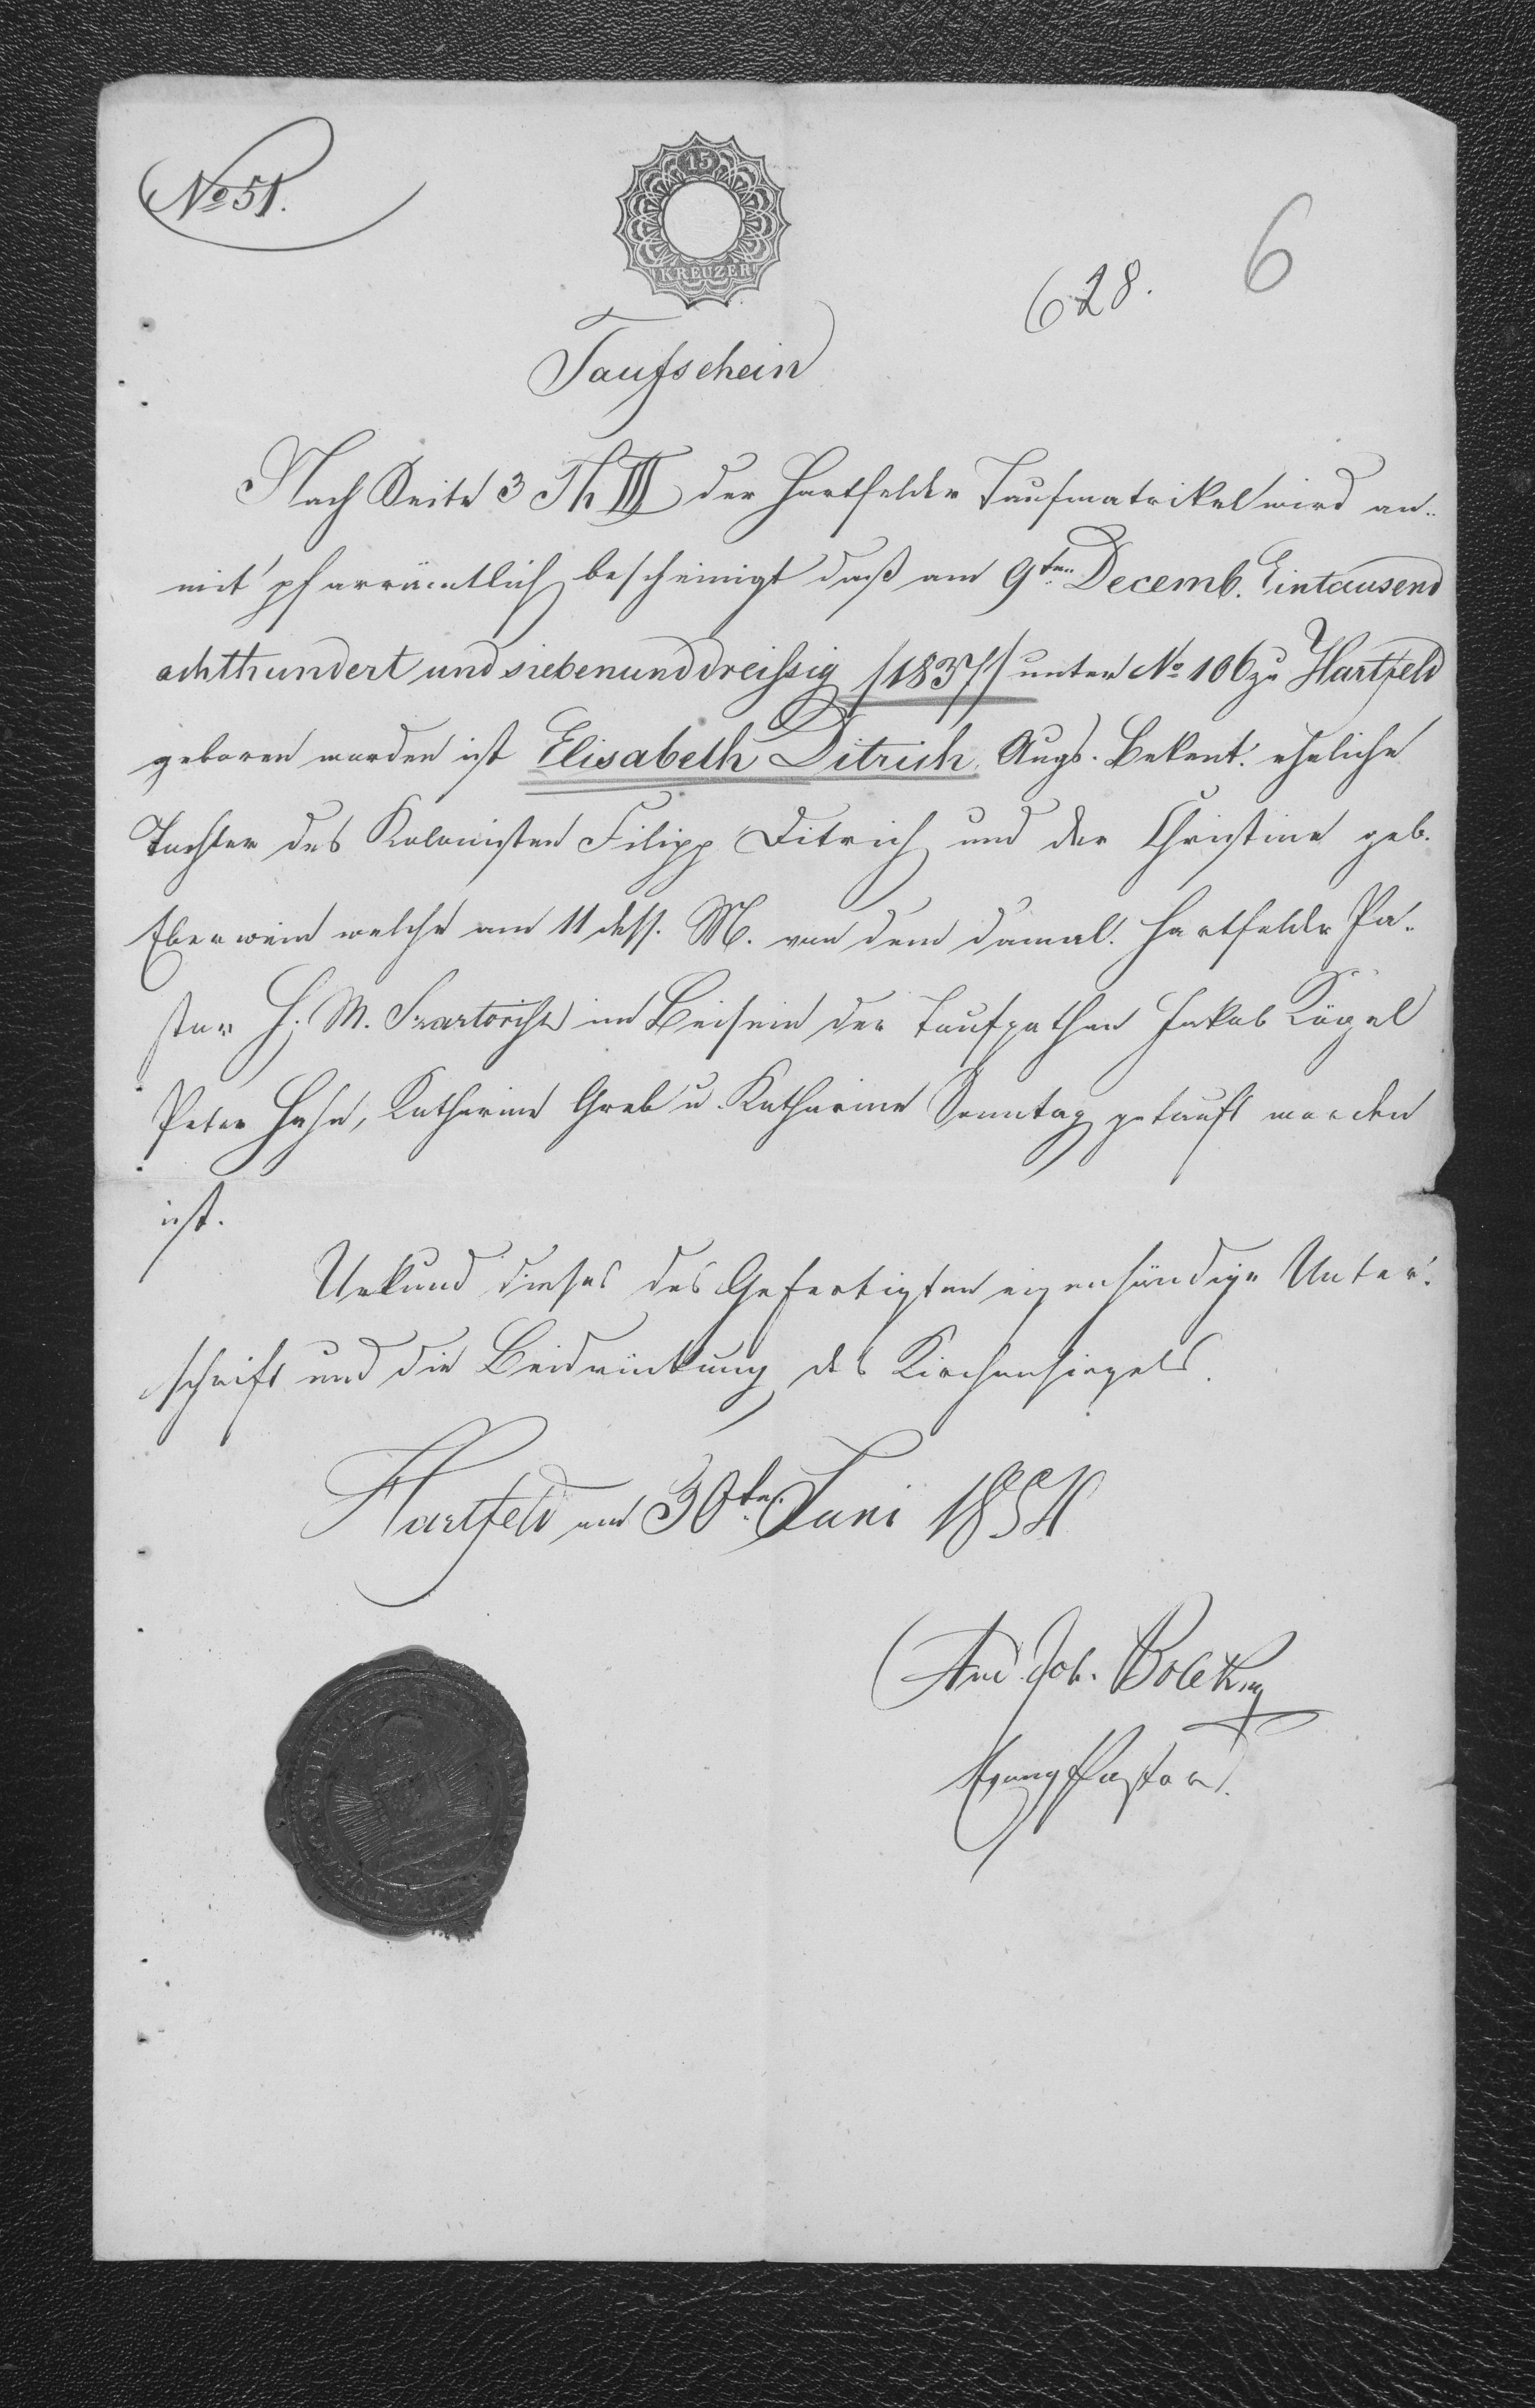 No 51.
15
KREUZER
628.
6
Taufschein
Nach Seite 3 Th III der Hartfelder Taufmatrikel wird an-
mit pfarrämtlich bescheinigt daß am 9ten Decemb. Eintausend
achthundert und siebenunddreißig /1837/ unter No 106 zu Hartfeld
geboren worden ist Elisabeth Ditrich, Augs. Bekent. eheliche
Tochter des Kolonisten Filipp Ditrich und der Christine geb.
Eberwein welche am 11 dess. M. von dem damal. Hartfelder Pa-
stor H. M. im Beisein der Taufpathen Jakob Kögel
Peter Hahn, Katharine Greb u. Katharine Sonntag getauft worden
ist.
Urkund dieses des Gefertigten eigenhändige Unter-
schrift und die Beidrückung des Kirchensiegels.
Hartfeld am 30ten Juni
And. Joh.
Evang Pastor.